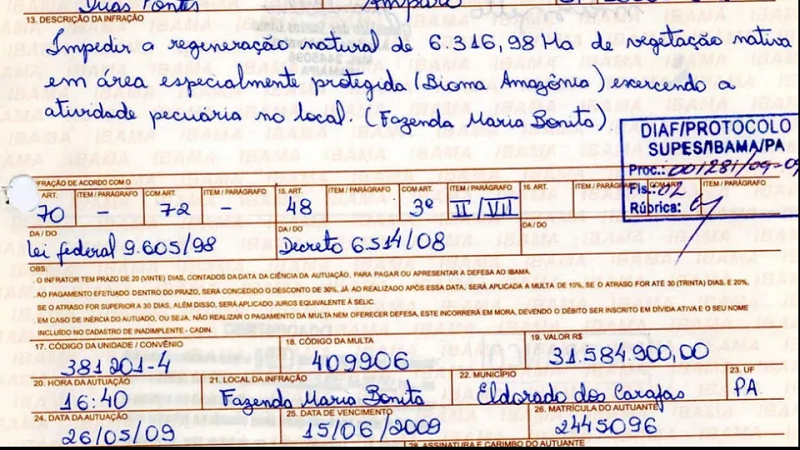 13. DESCRIÇÃO DA INFRAÇÃO
Impedir a regeneração natural de 6.316,98 Ha de vegetação nativa
em área especialmente protegida (Bioma Amazônia) exercendo a
atividade pecuária no local. (Fazenda Maria Bonita)
DIAF/PROTOCOLO
SUPES/IBAMA/PA
Proc.: 001281/09-09
Fls.: 02
Rúbrica:
INFRAÇÃO DE ACORDO COM O
ART. ITEM / PARÁGRAFO COM ART. ITEM / PARÁGRAFO 15. ART. ITEM / PARÁGRAFO COM ART. ITEM / PARÁGRAFO 16. ART. ITEM / PARÁGRAFO COM ART. ITEM / PARÁGRAFO
70 - 72 - 48 3º II/VII
DA / DO DA / DO DA / DO
lei federal 9.605/98 Decreto 6.514/08
OBS:
. O INFRATOR TEM PRAZO DE 20 (VINTE) DIAS, CONTADOS DA DATA DA CIÊNCIA DA AUTUAÇÃO, PARA PAGAR OU APRESENTAR A DEFESA AO IBAMA.
AO PAGAMENTO EFETUADO DENTRO DO PRAZO, SERÁ CONCEDIDO O DESCONTO DE 30%. JÁ AO REALIZADO APÓS ESSA DATA, SERÁ APLICADA A MULTA DE 10%, SE O ATRASO FOR ATÉ 30 (TRINTA) DIAS, E 20%,
SE O ATRASO FOR SUPERIOR A 30 DIAS, ALÉM DISSO, SERÁ APLICADO JUROS EQUIVALENTE À SELIC.
EM CASO DE INÉRCIA DO AUTUADO, OU SEJA, NÃO REALIZAR O PAGAMENTO DA MULTA NEM OFERECER DEFESA, ESTE INCORRERÁ EM MORA, DEVENDO O DÉBITO SER INSCRITO EM DÍVIDA ATIVA E O SEU NOME
INCLUÍDO NO CADASTRO DE INADIMPLENTE - CADIN.
17. CÓDIGO DA UNIDADE / CONVÊNIO 18. CÓDIGO DA MULTA 19. VALOR R$
381201-4 409906 31.584.900,00
20. HORA DA AUTUAÇÃO 21. LOCAL DA INFRAÇÃO 22. MUNICÍPIO 23. UF
16:40 Fazenda Maria Bonita Eldorado dos Carajas PA
24. DATA DA AUTUAÇÃO 25. DATA DE VENCIMENTO 26. MATRÍCULA DO AUTUANTE
26/05/09 15/06/2009 2445096
28. ASSINATURA E CARIMBO DO AUTUANTE